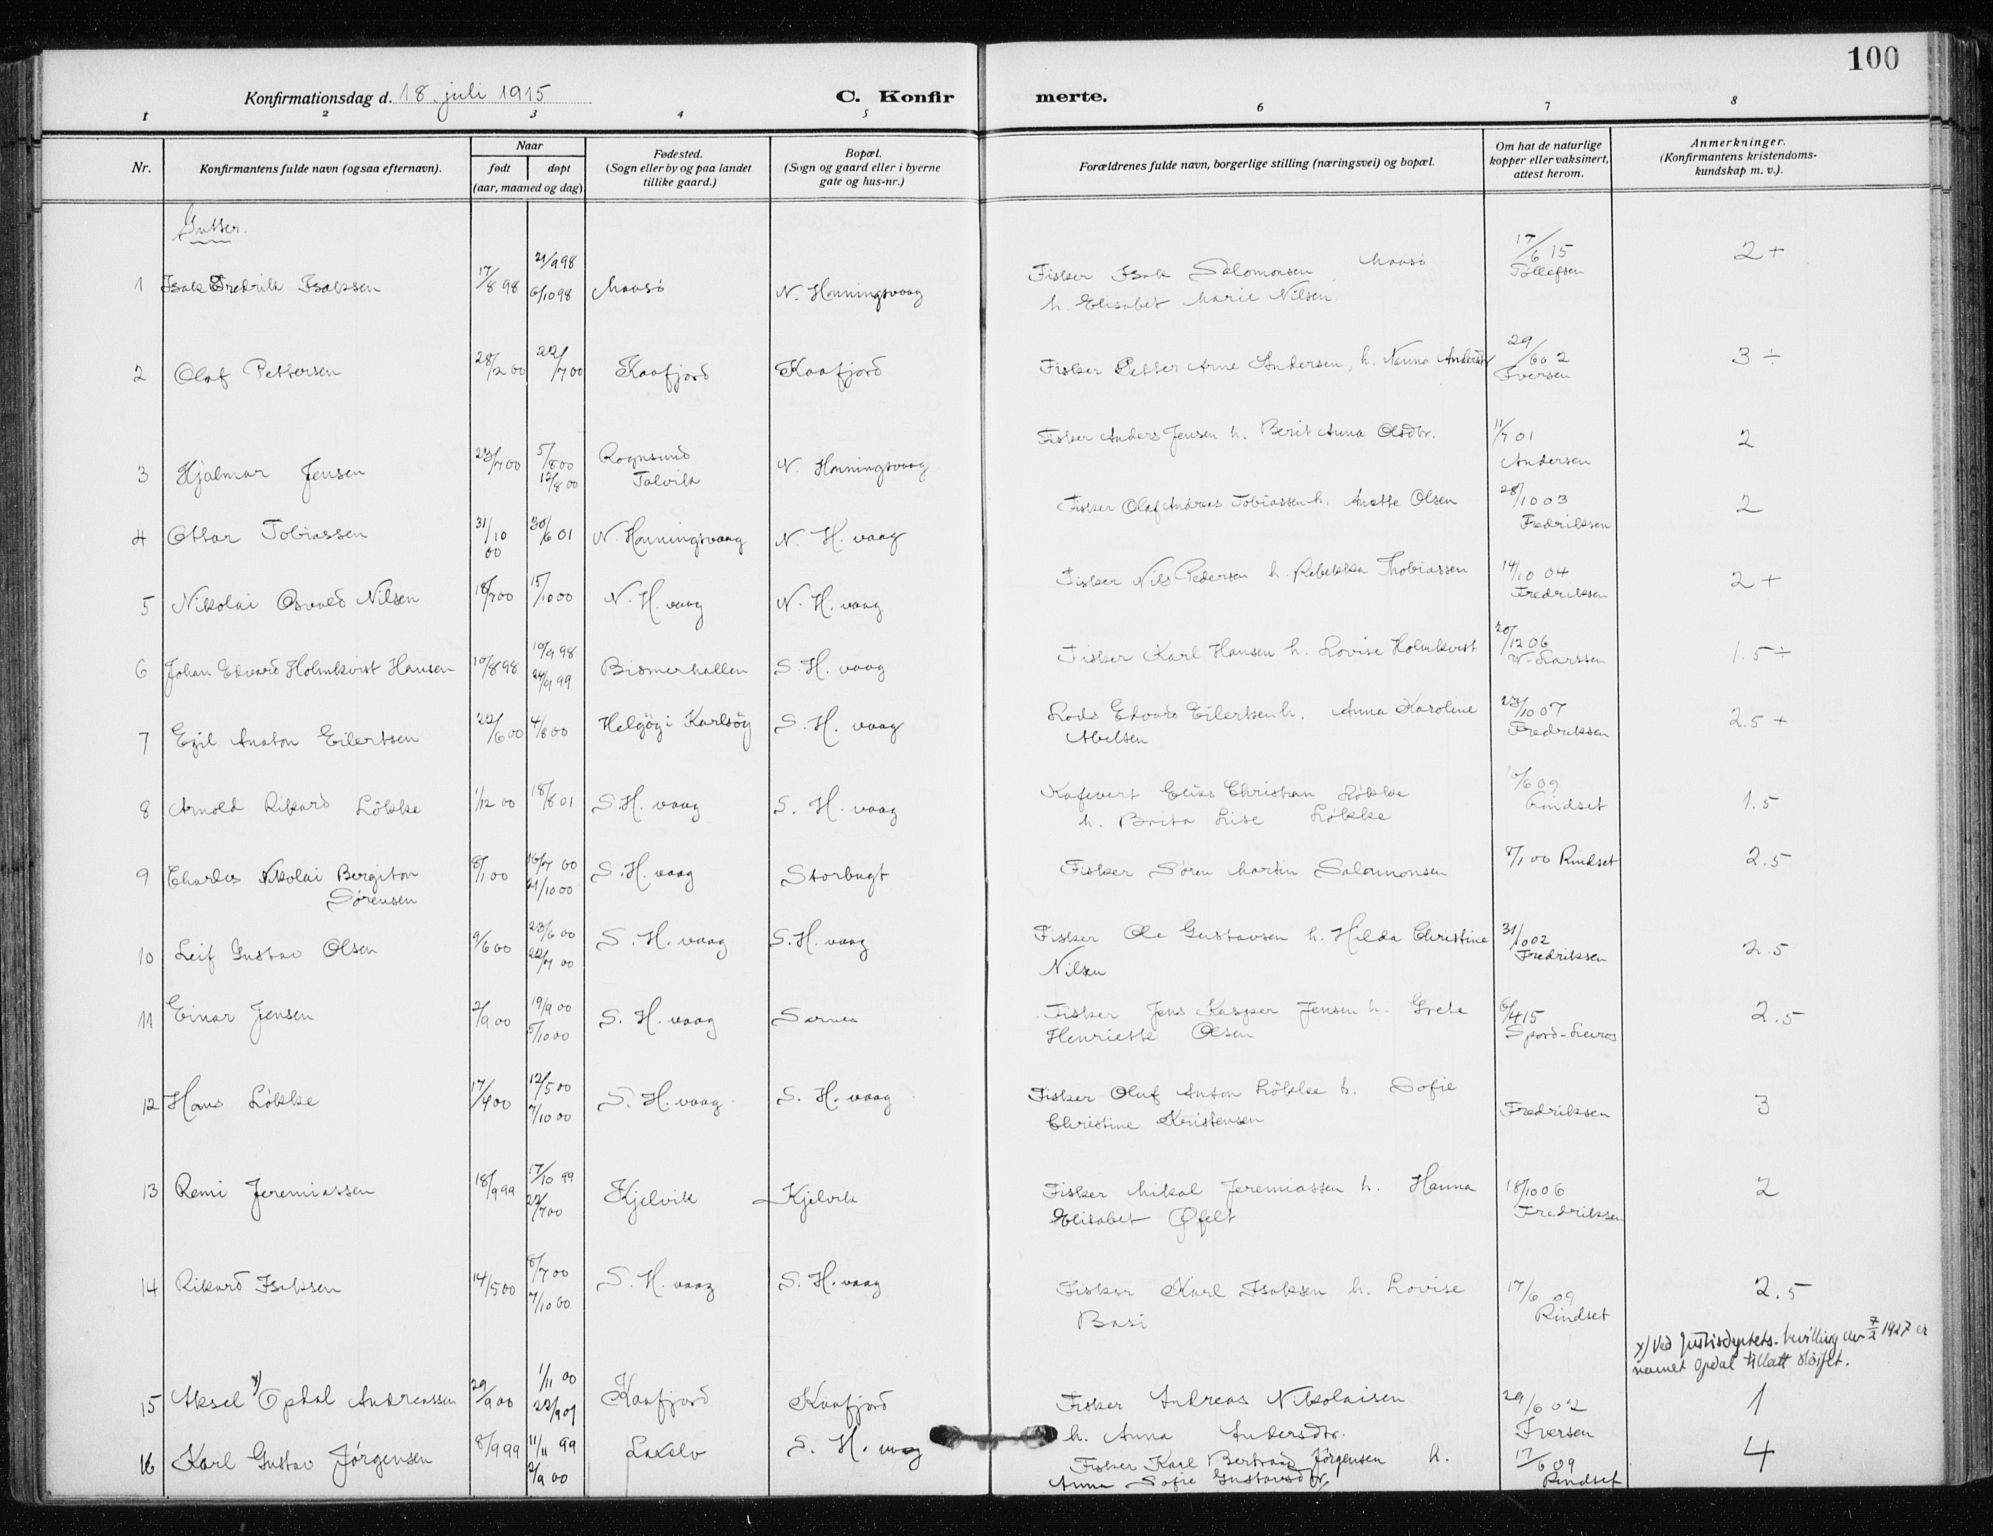 100
Konfirmationsdag d. 18. juli 1915 C. Konfirmerte.
1 2 3 4 5 6 7 8
Nr. Konfirmantens fulde navn (ogsaa efternavn). Naar født døpt (aar, maaned og dag) Fødested. (Sogn eller by og paa landet tillike gaard.) Bopæl. (Sogn og gaard eller i byerne gate og hus-nr.) Forældrenes fulde navn, borgerlige stilling (næringsvei) og bopæl. Om hat de naturlige kopper eller vaksinert, attest herom. Anmerkninger. (Konfirmantens kristendoms-kundskap m. v.).
Gutter.
1 Isak Fredrik Isaksen 17/8 98 21/9 98 6/10 98 Maasö N. Honningsvaag Fisker Isak Salomonsen, Maasö 17/6 15 Tollefsen 2 +
h. Elisabet Marie Nilsen.
2 Olaf Pettersen 28/2 00 22/7 00 Kaafjord Kaafjord Fisker Petter Arne Andersen, h. Nanna Andersdtr 29/6 02 Iversen 3 ÷
3 Hjalmar Jensen 23/7 00 5/8 00 12/8 00 Rognsund Talvik N. Honningsvaag Fisker Anders Jensen h. Berit Anna Olsdtr. 11/7 01 Andersen 2
4 Ottar Tobiassen 31/10 00 30/6 01 N. Honningsvaag N. H. vaag Fisker Olaf Andreas Tobiassen h. Anette Olsen 28/10 03 Fredriksen 2
5 Nikolai Osvald Nilsen 18/7 00 15/10 00 N. H. vaag N. H. vaag Fisker Nils Pedersen h. Rebekka Thobiassen 14/10 04 Fredriksen 2 +
6 Johan Edvard Holmkvist Hansen 10/8 98 10/9 98 24/9 99 Bismerhallen S. H. vaag Fisker Karl Hansen h. Lovise Holmkvist 20/12 06 W. Larssen 1.5 ÷
7 Egil Anaton Eilertsen 22/6 00 4/8 00 Helgöy i Karlsöy S. H. vaag Lods Edvard Eilertsen h. Anna Karoline 23/10 07 Fredriksen 2.5 +
Abelsen
8 Arnold Rikard Lökke 1/12 00 18/8 01 S. H. vaag S. H. vaag Kafevert Elias Christian Lökke 10/6 09 Rindset 1.5
h. Brita Lise Lökke
9 Charles Nikolai Bergiton 8/1 00 16/7 00 21/10 00 S. H. vaag Storbugt Fisker Sören Martin Salamonsen 7/1 00 Rindset 2.5
Sørensen
10 Leif Gustav Olsen 9/6 00 23/6 00 22/7 00 S. H. vaag S. H. vaag Fisker Ole Gustavsen h. Hilda Christine 31/10 02 Fredriksen 2.5
Nilsen
11 Einar Jensen 2/9 00 19/9 00 5/10 00 S. H. vaag Sarnes Fisker Jens Kasper Jensen h. Grete 6/4 15 2.5
Henriette Olsen
12 Hans Lökke 17/4 00 12/5 00 7/10 00 S. H. vaag S. H. vaag Fisker Oluf Anton Lökke h. Sofie Fredriksen 3
Christine Kristensen
13 Remi Jeremiassen 18/9 99 17/10 99 22/7 00 Kjelvik Kjelvik Fisker Mikal Jeremiassen h. Hanna 18/10 06 Fredriksen 2
Elisabet Øfelt
14 Rikard Isaksen 14/5 00 8/7 00 7/10 00 S. H. vaag S. H. vaag Fisker Karl Isaksen h. Lovise 17/6 09 Rindset 2.5
Basi
x) Ved Justisdeptets. bevilling av 7/2 1927 er
navnet Opdal tillatt sløifet.
15 Aksel x) Opdal Andreassen 29/9 00 1/11 00 22/9 01 Kaafjord Kaafjord Fisker Andreas Nikolaisen 29/6 02 Iversen 1
h. Anna Andersdtr.
16 Karl Gustav Jørgensen 8/9 99 11/11 99 2/9 00 Laxelv S. H. vaag Fisker Karl Bertrad Jørgensen h. 17/6 09 Rindset 4
Anna Sofie Gustavsdtr.